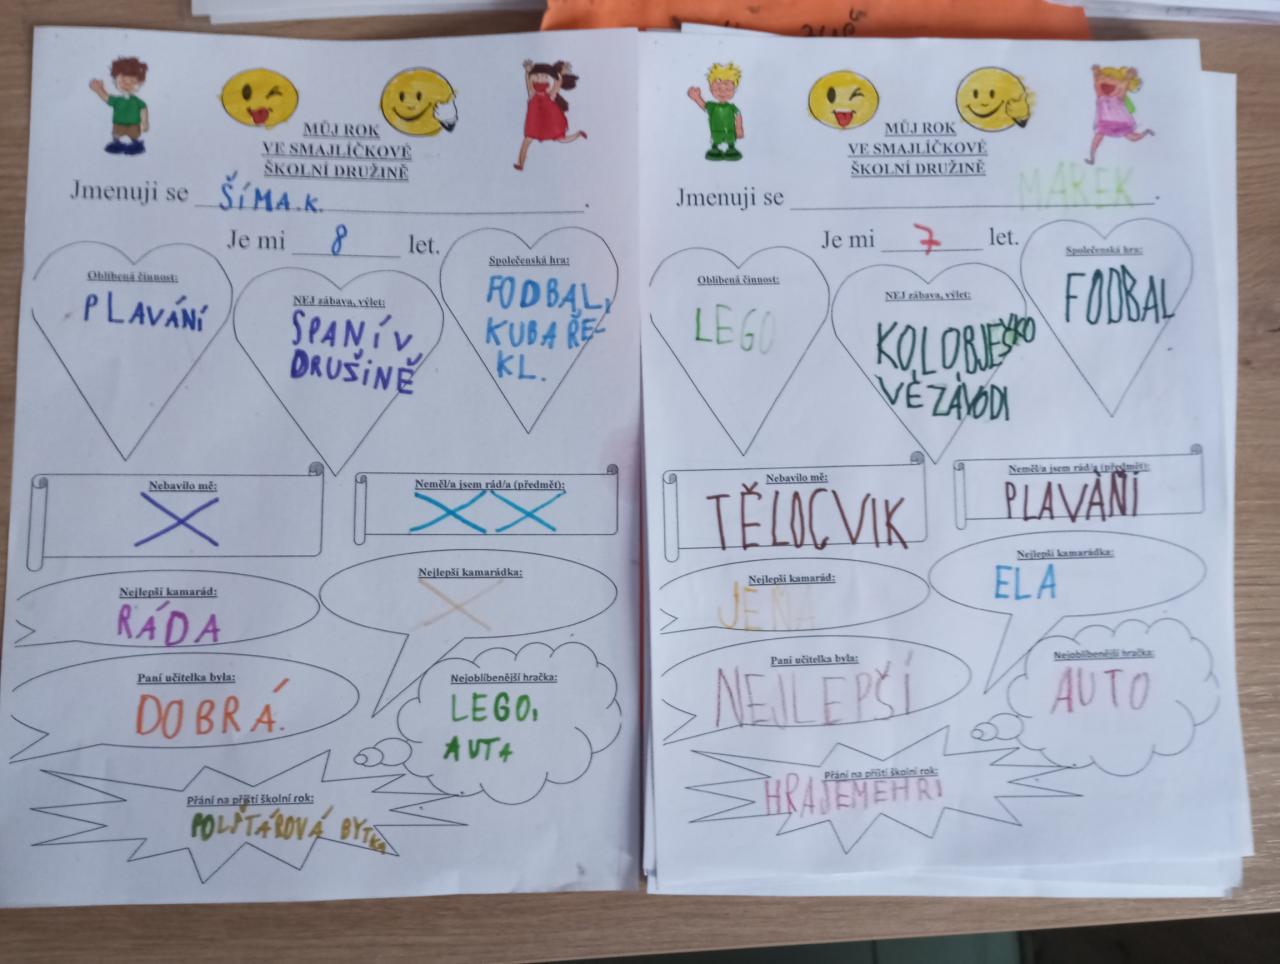 MŮJ ROK
VE SMAJLÍČKOVÉ
ŠKOLNÍ DRUŽINĚ
Jmenuji se ŠÍMA.K.
Je mi 8 let.
Oblíbená činnost:
PLAVÁNÍ
NEJ zábava, výlet:
SPANÍ V
DRUŠINĚ
Společenská hra:
FODBAL,
KUBAŘE-
KL.
Nebavilo mě:
Neměl/a jsem rád/a (předmět):
Nejlepší kamarád:
RÁDA
Nejlepší kamarádka:
Paní učitelka byla:
DOBRÁ.
Nejoblíbenější hračka:
LEGO,
AUTA
Přání na příští školní rok:
POLŠTÁŘOVÁ BYTKA
MŮJ ROK
VE SMAJLÍČKOVÉ
ŠKOLNÍ DRUŽINĚ
Jmenuji se MAREK.
Je mi 7 let.
Oblíbená činnost:
LEGO
NEJ zábava, výlet:
KOLOBJEŠKO
VÉ ZÁVODI
Společenská hra:
FODBAL
Nebavilo mě:
TĚLOCVIK
Neměl/a jsem rád/a (předmět):
PLAVÁNÍ
Nejlepší kamarád:
Nejlepší kamarádka:
ELA
Paní učitelka byla:
NEJLEPŠÍ
Nejoblíbenější hračka:
AUTO
Přání na příští školní rok:
HRAJEMEHRI